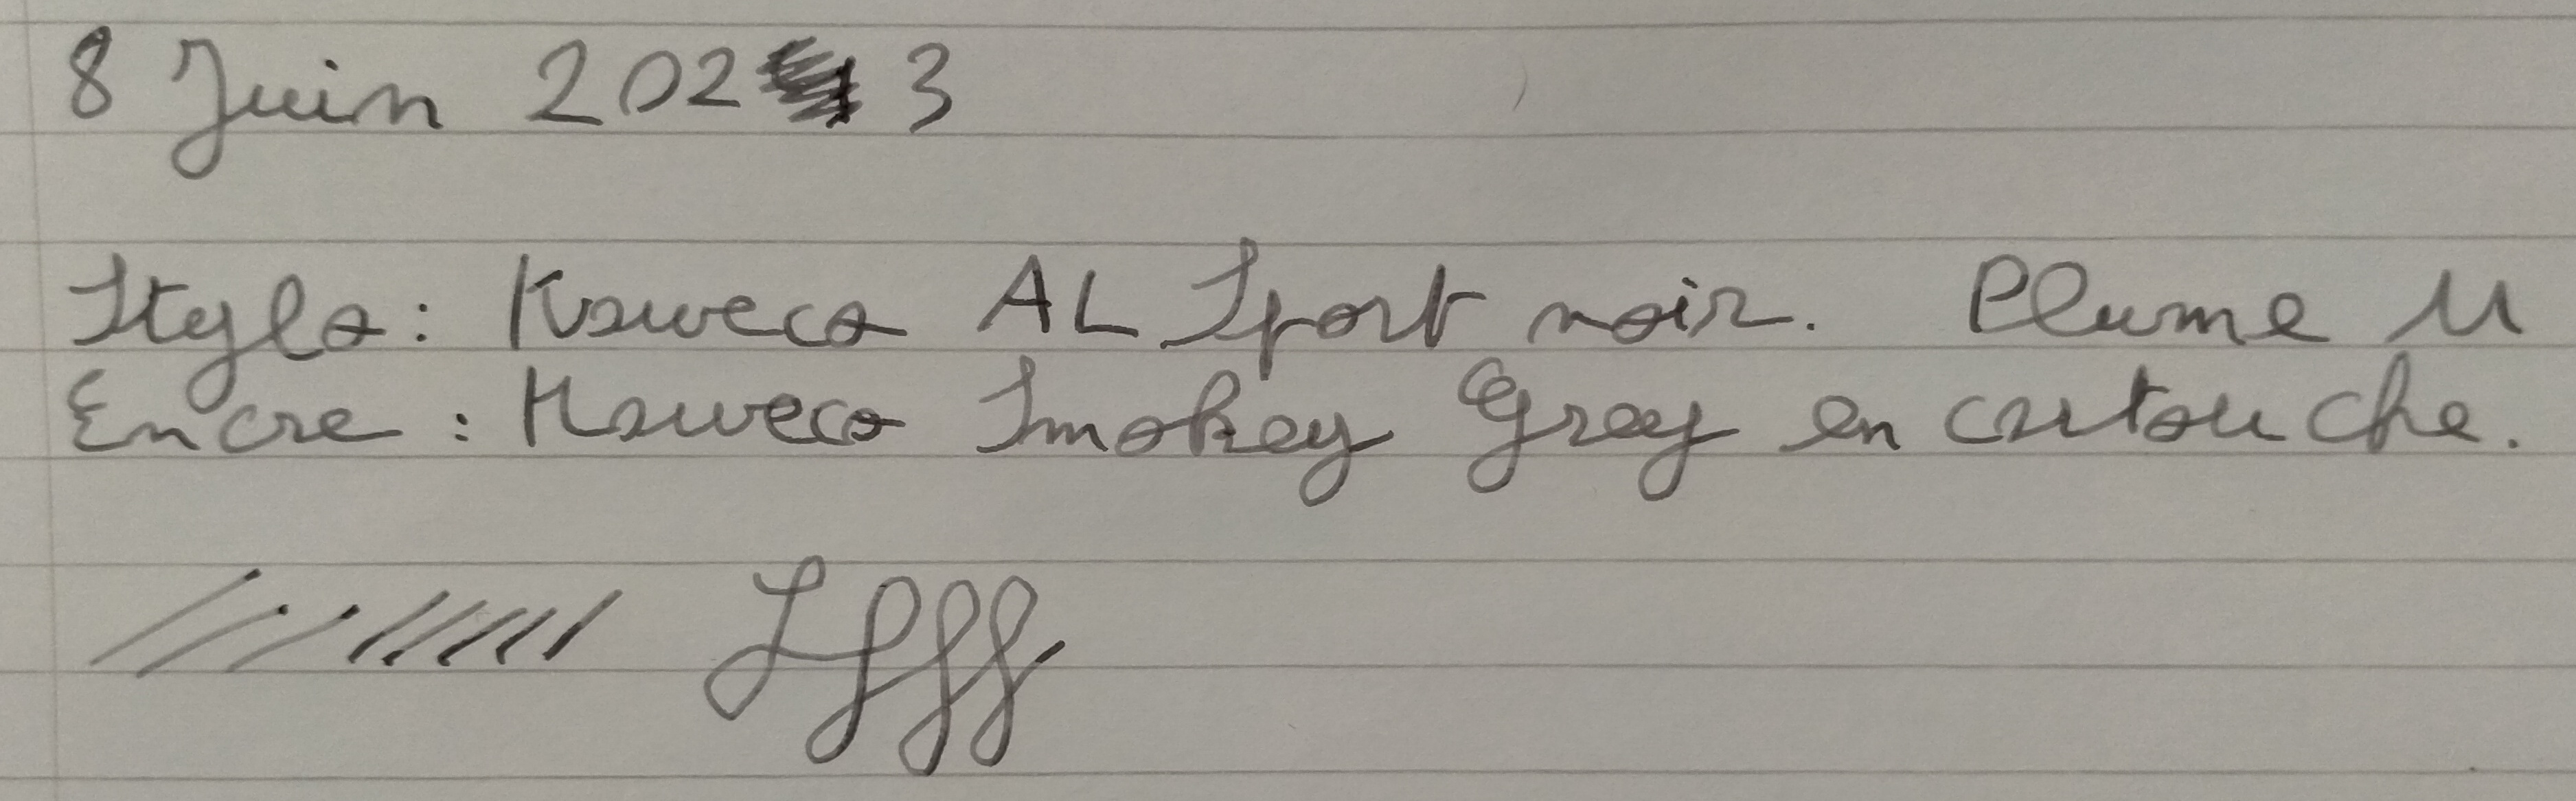 8 Juin 2023
Stylo : Kaweco AL Sport noir. Plume M
Encre : Kaweco Smokey Grey en cartouche.